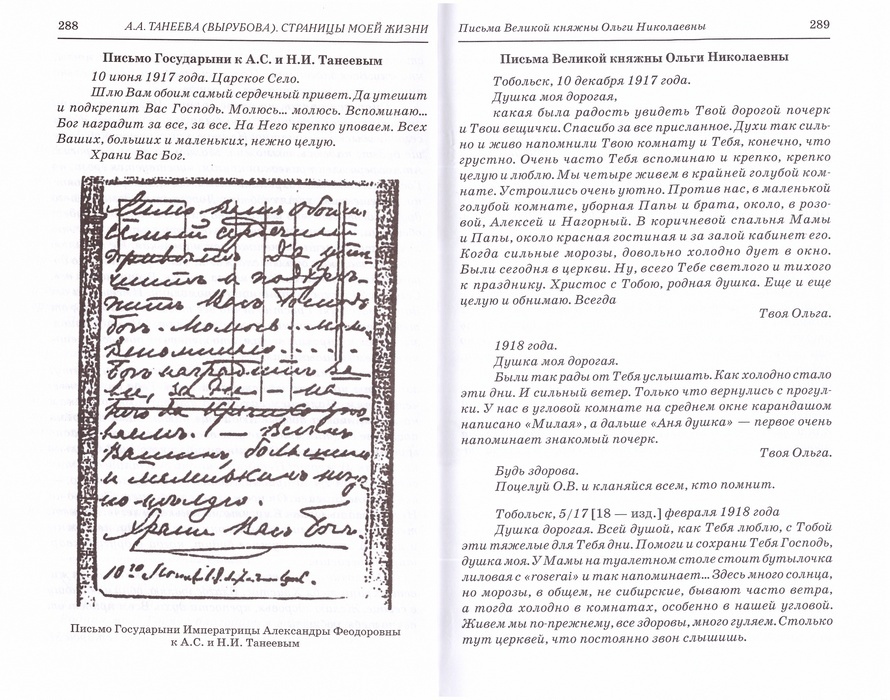 288
А.А. ТАНЕЕВА (ВЫРУБОВА). СТРАНИЦЫ МОЕЙ ЖИЗНИ
Письмо Государыни к А.С. и Н.И. Танеевым
10 июня 1917 года. Царское Село.
Шлю Вам обоим самый сердечный привет. Да утешит
и подкрепит Вас Господь. Молюсь... молюсь. Вспоминаю...
Бог наградит за все, за все. На Него крепко уповаем. Всех
Ваших, больших и маленьких, нежно целую.
Храни Вас Бог.
Шлю Вамъ обоимъ
самый сердечный
привѣтъ. Да утѣ-
шитъ и подкрѣ-
питъ Васъ Господь
Богъ. Молюсь... молю
Вспоминаю.....
Богъ наградитъ за
все, за все — на
Него
уповаемъ. — Всѣхъ
Вашихъ, большихъ
и маленькихъ нѣж
но цѣлую.
Храни Васъ Богъ.
Письмо Государыни Императрицы Александры Феодоровны
к А.С. и Н.И. Танеевым
Письма Великой княжны Ольги Николаевны
289
Письма Великой княжны Ольги Николаевны
Тобольск, 10 декабря 1917 года.
Душка моя дорогая,
какая была радость увидеть Твой дорогой почерк
и Твои вещички. Спасибо за все присланное. Духи так силь-
но и живо напомнили Твою комнату и Тебя, конечно, что
грустно. Очень часто Тебя вспоминаю и крепко, крепко
целую и люблю. Мы четыре живем в крайней голубой ком-
нате. Устроились очень уютно. Против нас, в маленькой
голубой комнате, уборная Папы и брата, около, в розо-
вой, Алексей и Нагорный. В коричневой спальня Мамы
и Папы, около красная гостиная и за залой кабинет его.
Когда сильные морозы, довольно холодно дует в окно.
Были сегодня в церкви. Ну, всего Тебе светлого и тихого
к празднику. Христос с Тобою, родная душка. Еще и еще
целую и обнимаю. Всегда
Твоя Ольга.
1918 года.
Душка моя дорогая.
Были так рады от Тебя услышать. Как холодно стало
эти дни. И сильный ветер. Только что вернулись с прогул-
ки. У нас в угловой комнате на среднем окне карандашом
написано «Милая», а дальше «Аня душка» — первое очень
напоминает знакомый почерк.
Твоя Ольга.
Будь здорова.
Поцелуй О.В. и кланяйся всем, кто помнит.
Тобольск, 5/17 [18 — изд.] февраля 1918 года
Душка дорогая. Всей душой, как Тебя люблю, с Тобой
эти тяжелые для Тебя дни. Помоги и сохрани Тебя Господь,
душка моя. У Мамы на туалетном столе стоит бутылочка
лиловая с «roserai» и так напоминает... Здесь много солнца,
но морозы, в общем, не сибирские, бывают часто ветра,
а тогда холодно в комнатах, особенно в нашей угловой.
Живем мы по-прежнему, все здоровы, много гуляем. Столько
тут церквей, что постоянно звон слышишь.